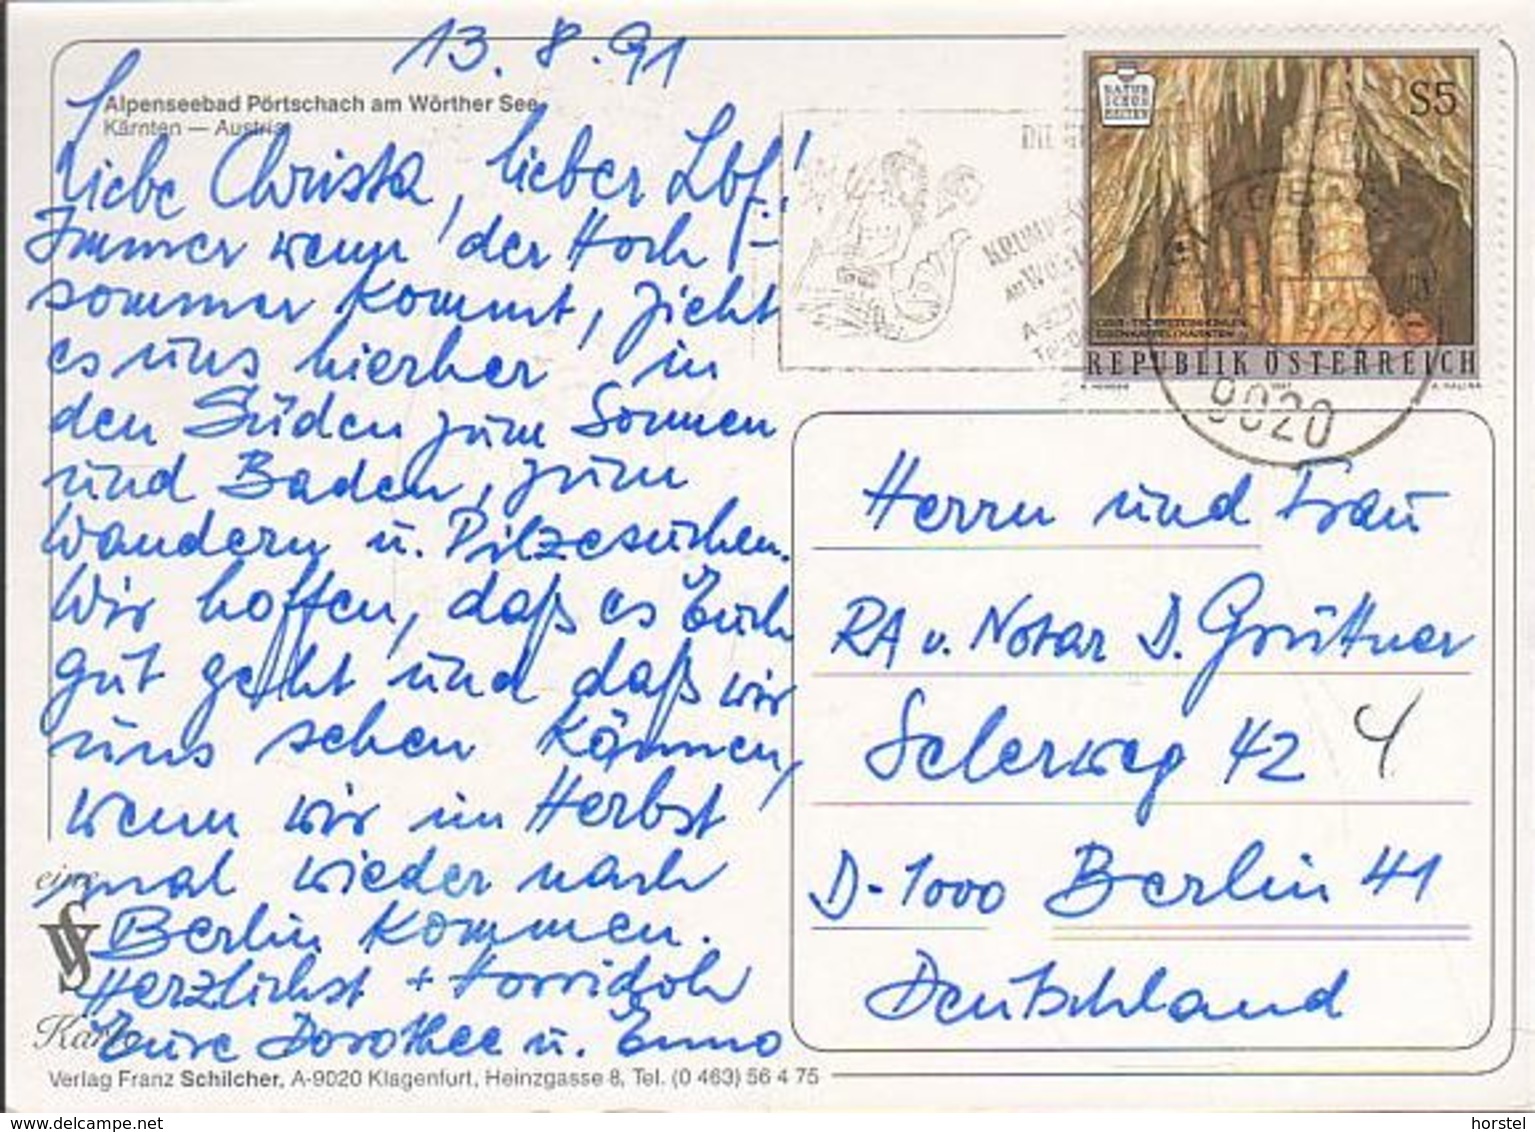 13.8.91
Alpenseebad Pörtschach am Wörther See
Kärnten — Austria
Liebe Christa, lieber Lbf.!
Immer wenn der Hoch-
sommer kommt, zieht
es uns hierher in
den Süden zum Sonnen
und Baden, zum
Wandern u. Pilzesuchen.
Wir hoffen, daß es Euch
gut geht und daß wir
uns sehen können,
wenn wir im Herbst
mal wieder nach
Berlin kommen.
Herzlichst + Horridoh
Eure Dorothee u. Enno
eine
Karte
Verlag Franz Schilcher, A-9020 Klagenfurt, Heinzgasse 8, Tel. (0 463) 56 4 75
NATUR
SCHÖN
HEITEN
S5
REPUBLIK ÖSTERREICH
KRUMPENDORF
9020
Herrn und Frau
RA u. Notar D. Grüttner
Selerweg 42
D-1000 Berlin 41
Deutschland
www.delcampe.net
horstel